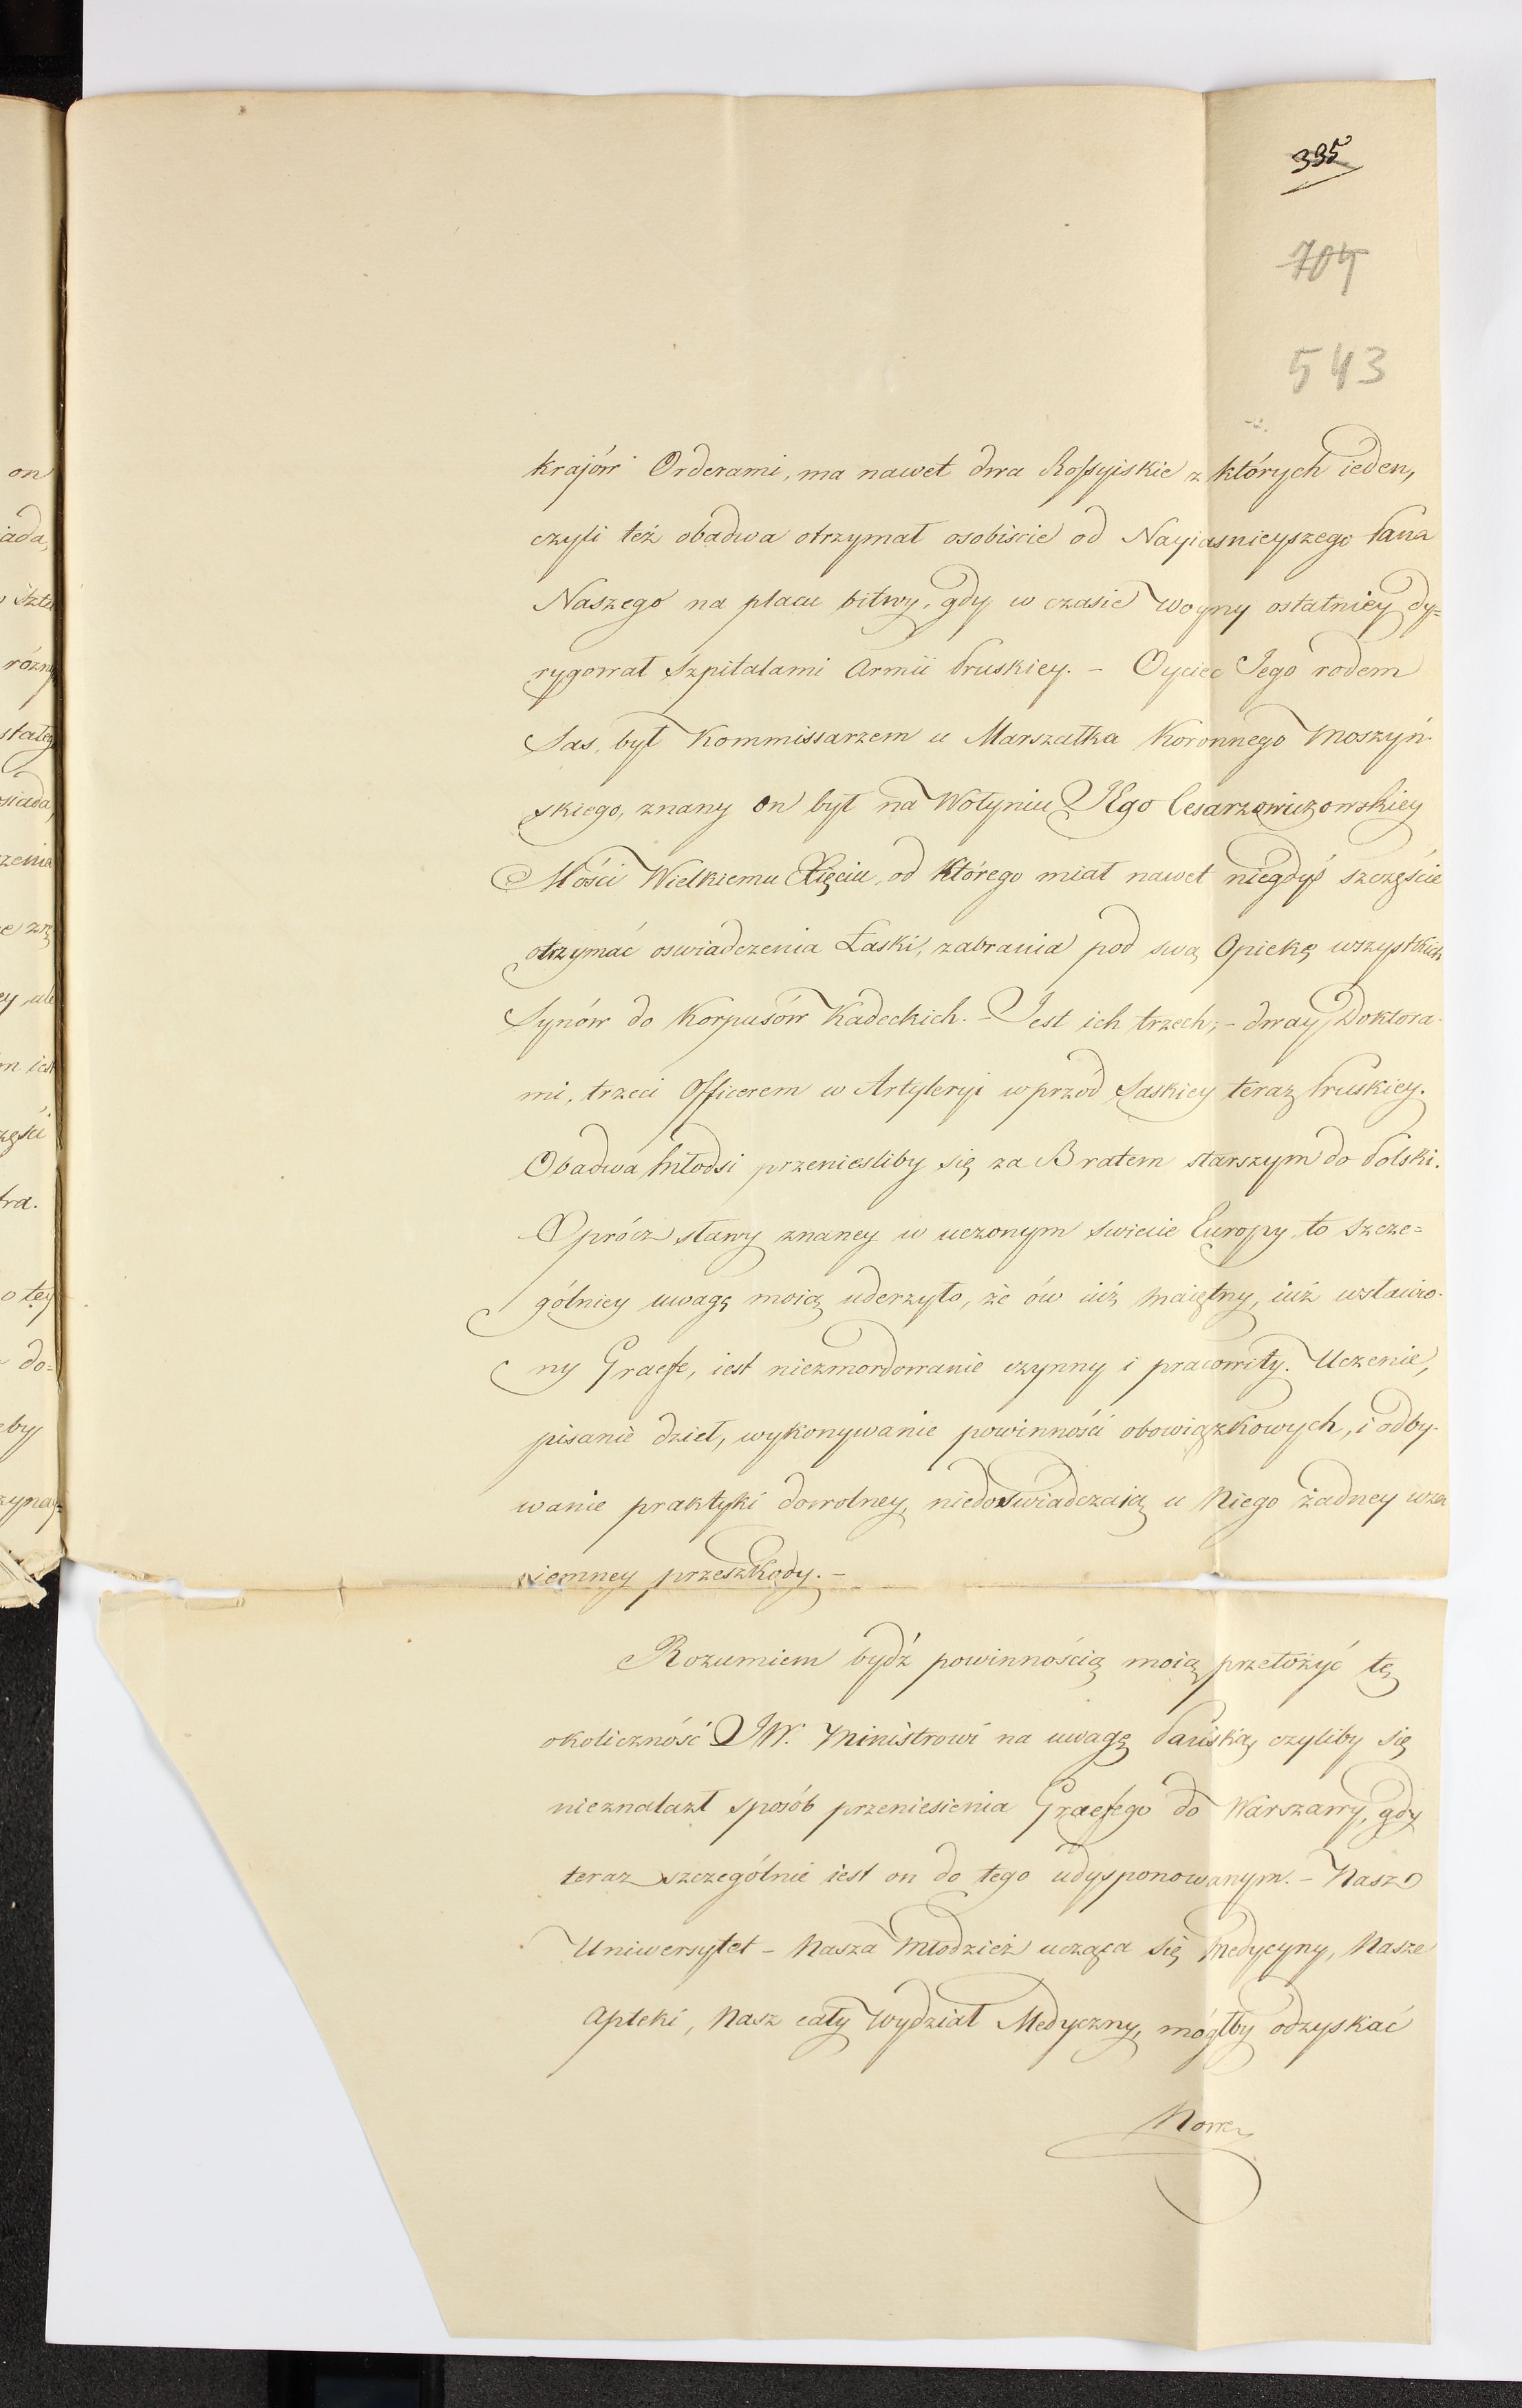 395
704
543
krajów Orderami, ma nawet dwa Rossyiskie z których ieden,
czyli też obadwa otrzymał osobiscie od Nayiasnieyszego Pana
Naszego na placu bitwy, gdy w czasie Woyny ostatniey dy=
rygował Szpitalami Armii Pruskiey. – Oyciec Jego rodem
Sas, był Kommissarzem u Marszałka Koronnego Moszyń-
skiego, znany on był na Wołyniu JEgo Cesarzewiczowskiey
Mości Wielkiemu Xięciu, od Którego miał nawet niegdyś szczęście
otrzymać oswiadczenia Łaski, zabrania pod swą Opiekę wszystkich
Synów do Korpusów Kadeckich. – Jest ich trzech, – dway Doktora-
mi, trzeci Officerem w Artyleryi wprzod Saskiey teraz Pruskiey.
Obadwa Młodsi przenieśliby się za Bratem starszym do Polski.
Oprócz sławy znaney w uczonym swiecie Europy, to szcze=
gólniey uwagę moią uderzyło, że ów iuż maiętny, iuż wsławio-
ny Graefe, iest niezmordowanie czynny i pracowity. Uczenie,
pisanie dzieł, wykonywanie powinności obowiązkowych, i odby-
wanie praktyki dowolney, niedoswiadczaią u Niego żadney wza
iemney przeszkody. –
Rozumiem bydź powinnością moią przełożyć tę
okoliczność JW. Ministrowi na uwagę Pańską, czyliby się
nieznalazł sposób przeniesienia Graefego do Warszawy, gdy
teraz szczególnie iest on do tego udysponowanym. – Nasz
Uniwersytet – Nasza Młodzież ucząca się Medycyny, Nasze
Apteki, Nasz cały Wydział Medyczny, mógłby odzyskać
Nowe
on
iada,
różny
siada,
zenia
ey ale
m iest
ra.
o tey
do=
eby